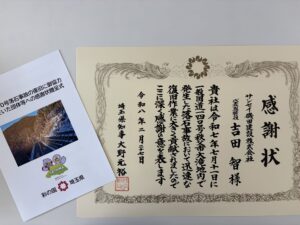 感謝状
サンセイ磯田建設株式会社
吉田智様
貴社は令和七年七月十一日に
一般国道一四〇号秩父市大滝地内で
発生した落石事故において迅速な
復旧作業に大きく貢献されましたので
ここに深く感謝の意を表します
令和八年二月二十七日
埼玉県知事大野元裕
0号落石事故の復旧に御協力
いた団体等への感謝状贈呈式
彩の国
埼玉県